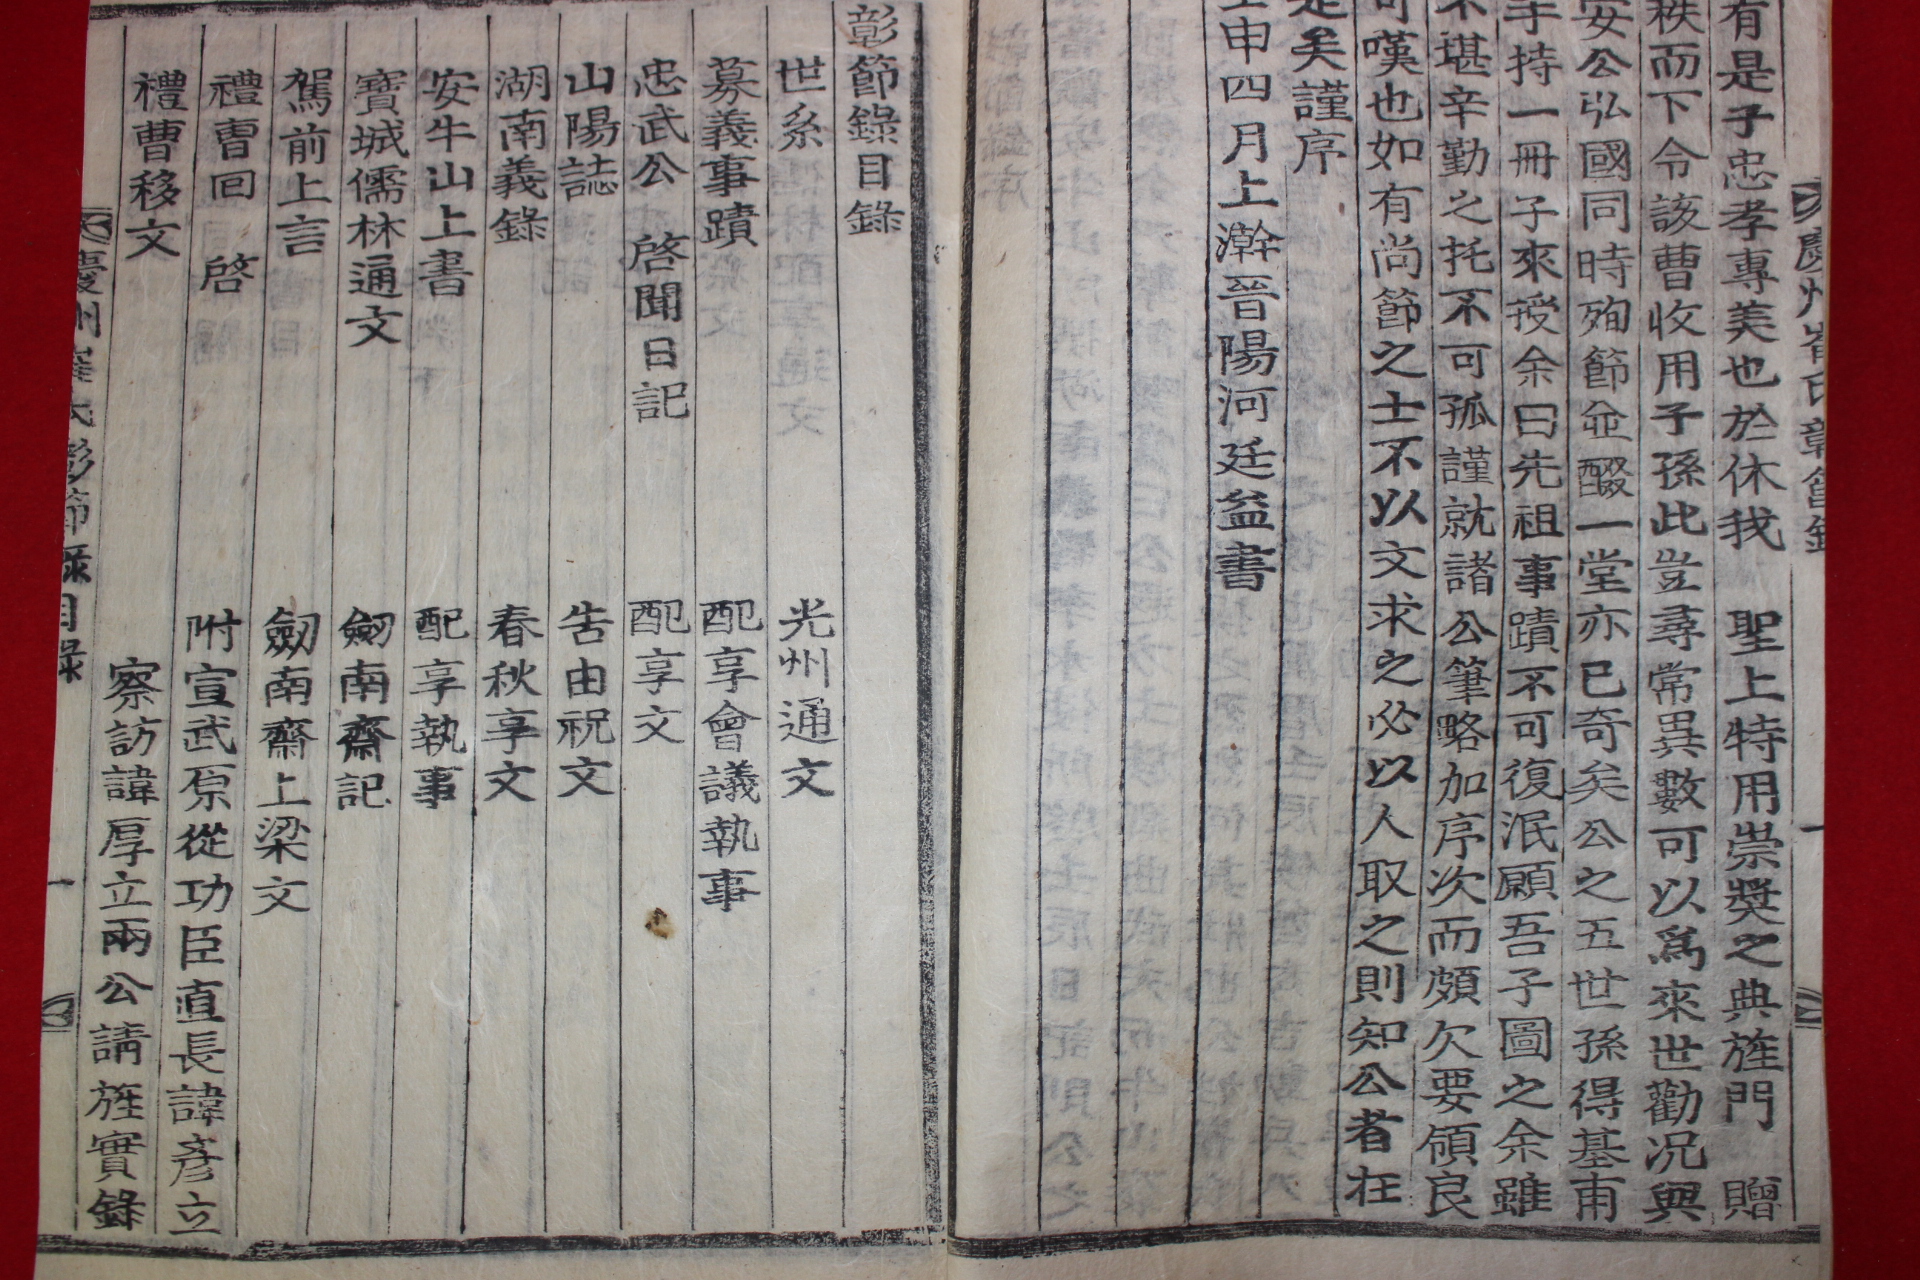 有是子忠孝專美也於休我 聖上特用崇奬之典旌門 贈
秩而下令該曹收用子孫此豈尋常異數可以爲來世勸况與
安公弘國同時殉節並醊一堂亦已奇矣公之五世孫得基甫
手持一冊子來授余曰先祖事蹟不可復泯願吾子圖之余雖
不堪辛勤之托不可孤謹就諸公筆略加序次而頗欠要領良
可嘆也如有尚節之士不以文求之必以人取之則知公者在
是矣謹序
壬申四月上澣晉陽河廷益書
慶州崔氏彰節錄
一
彰節錄目錄
世系
光州通文
募義事蹟
配享會議執事
忠武公 啓聞日記
配享文
山陽誌
告由祝文
湖南義錄
春秋享文
安牛山上書
配享執事
寶城儒林通文
劒南齋記
駕前上言
劒南齋上梁文
禮曹回 啓
附宣武原從功臣直長諱彦立
禮曹移文
察訪諱厚立兩公請旌實錄
慶州崔氏彰節錄目錄
一